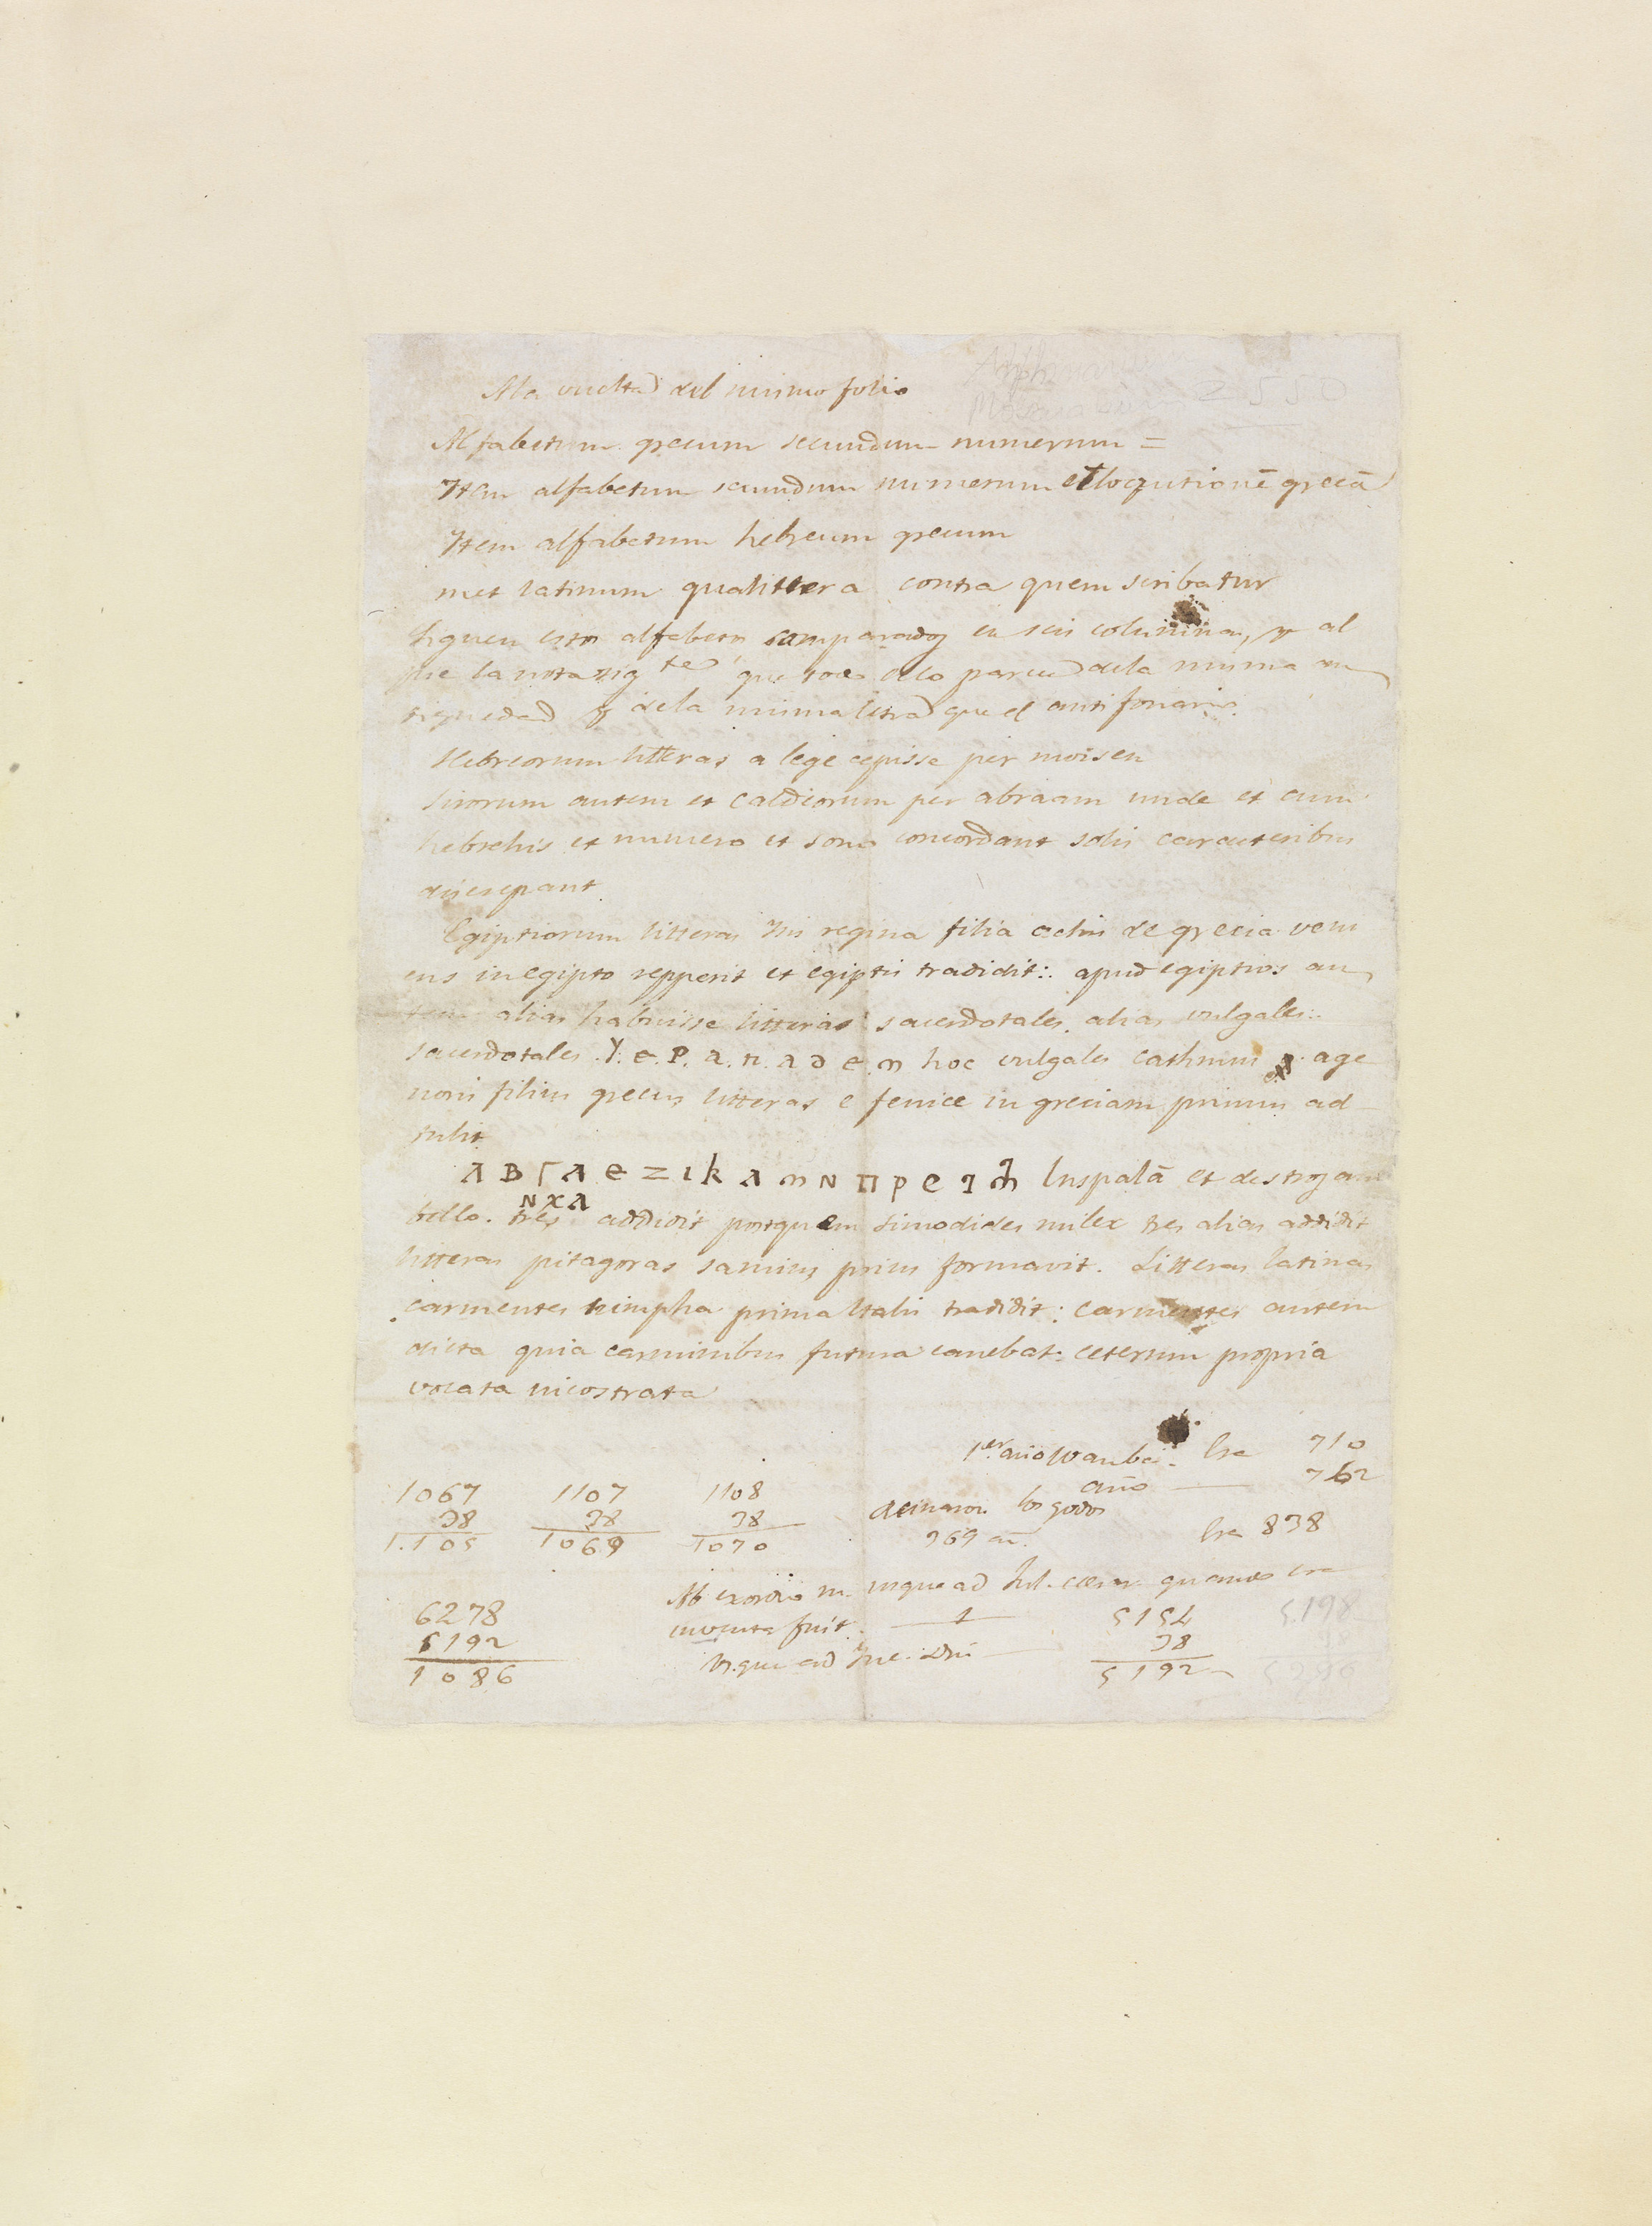 Ala vuelta del mismo folio
Alfabetum grecum secundum numerum =
Item alfabetum secundum numerum et locqutionē grecā
Item alfabetum hebreum grecum
met latinum qualittera contra quem scribatur
siguen estos alfabetos comparados en seis columnas, y al
pie la nota sigte que todo ello parece dela misma an
tiguedad y dela misma letra que el antifonario.
Hebreorum litteras a lege cepisse per moisen
sirorum autem et caldeorum per abraam unde et cum
hebrehis et numero et sono concordant solis caracteribus
discrepant
Egiptiorum litteras Isis regina filia achis de grecia veni
ens in egipto repperit et egiptis tradidit:. apud egiptios au
tem alias habuisse litteras sacerdotales. alias vulgales:.
sacerdotales .Y. e. P. a. π. a ∂ e. m hoc vulgales cathmus age
noris filius grecus litteras e fenice in greciam primus ad
tulit
Λ B Γ Λ e Z ι k Λ m N Π P e ꓶ Inspalā et des trojan
N X Λ
bello. tres addidit postquem simodides milex tres alias addidit
litteras pitagoras samius prius formavit. Litteras latinas
carmentes nimpha prima Italis tradidit: carmentes autem
dicta quia carminibus futura canebat: ceterum propria
vocata nicostrata
1er. año Wamba. Era 710
año 762
1067 1107 1108
38 38 38
1.105 1069 1070
dominaron los godos
369 añ. Era 838
Ab exordio m. usque ad Jul. cesar quando era
inventa fuit. 1 5154 5198
38
Usque ad Inc. Dni 5192
6278
5192
1086